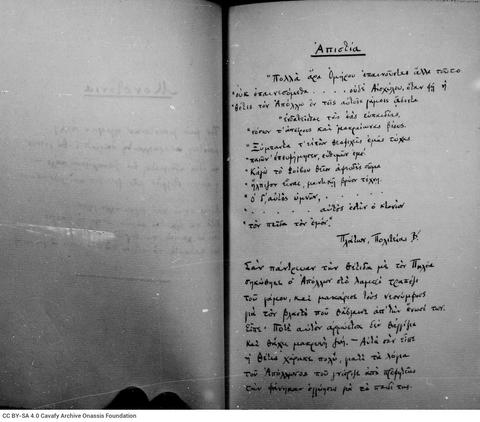 Ἀπιστία
"Πολλὰ ἄρα Ὁμήρου ἐπαινοῦντες ἄλλα τοῦτο
"οὐκ ἐπαινεσόμεθα . . . . . οὐδὲ Αἰσχύλου, ὅταν φῇ ἡ
"Θέτις τὸν Ἀπόλλω ἐν τοῖς αὐτῆς γάμοις ᾄδοντα
"ἐνδατεῖσθαι τὰς ἑὰς εὐπαιδίας,
"νόσων τ' ἀπείρους καὶ μακραίωνας βίους.
"Ξύμπαντα τ' εἰπὼν θεοφιλεῖς ἐμὰς τύχας
"παιῶν' ἐπευφήμησεν, εὐθυμῶν ἐμέ.
"Κἀγὼ τὸ Φοίβου θεῖον ἀψευδὲς στόμα
"ἤλπιζον εἶναι, μαντικῇ βρύον τέχνῃ.
"Ὁ δ', αὐτὸς ὑμνῶν, . . . . . . . .
" . . . . . . . αὐτός ἐστιν ὁ κτανὼν
"τὸν παῖδα τὸν ἐμόν."
Πλάτων, Πολιτείας Β'
Σὰν πάντρευαν τὴν Θέτιδα μὲ τὸν Πηλέα
σηκώθηκε ὁ Ἀπόλλων στὸ λαμπρὸ τραπέζι
τοῦ γάμου, καὶ μακάρισε τοὺς νεονύμφους
γιὰ τὸν βλαστὸ ποὺ θἄβγαινε ἀπ' τὴν ἕνωσί των.
Εἶπε· Ποτὲ αὐτὸν ἀρρώστια δὲν θἀγγίξει
καὶ θἄχει μακρυνὴ ζωή. — Αὐτὰ σὰν εἶπε
ἡ Θέτις χάρηκε πολύ, γιατὶ τὰ λόγια
τοῦ Ἀπόλλωνος ποὺ γνώριζε ἀπὸ προφητείες
τὴν φάνηκαν ἐγγύησις γιὰ τὸ παιδί της.
CC BY-SA 4.0 Cavafy Archive Onassis Foundation